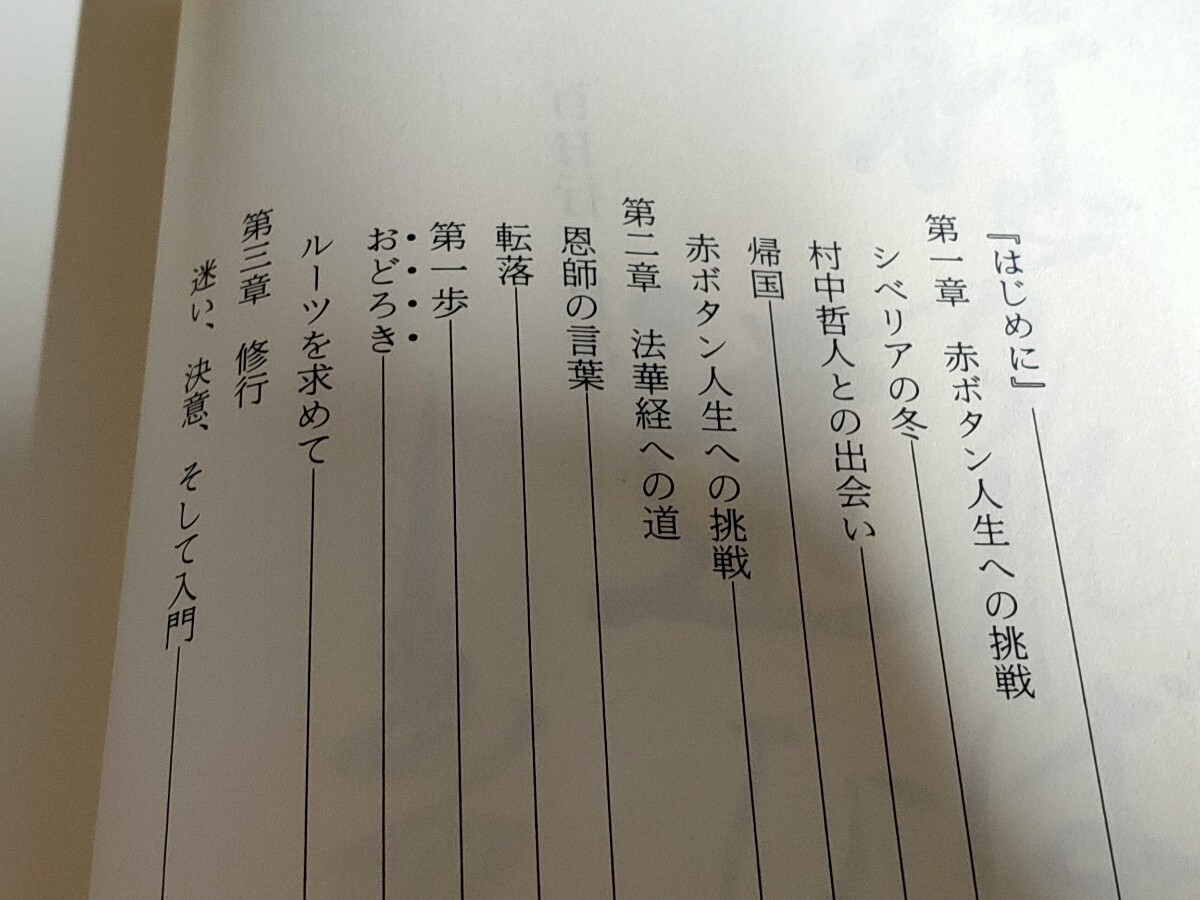 『はじめに』
第一章　赤ボタン人生への挑戦
シベリアの冬
村中哲人との出会い
帰国
赤ボタン人生への挑戦
第二章　法華経への道
恩師の言葉
転落
第一歩
おどろき
ルーツを求めて
第三章　修行
迷い、決意、そして入門